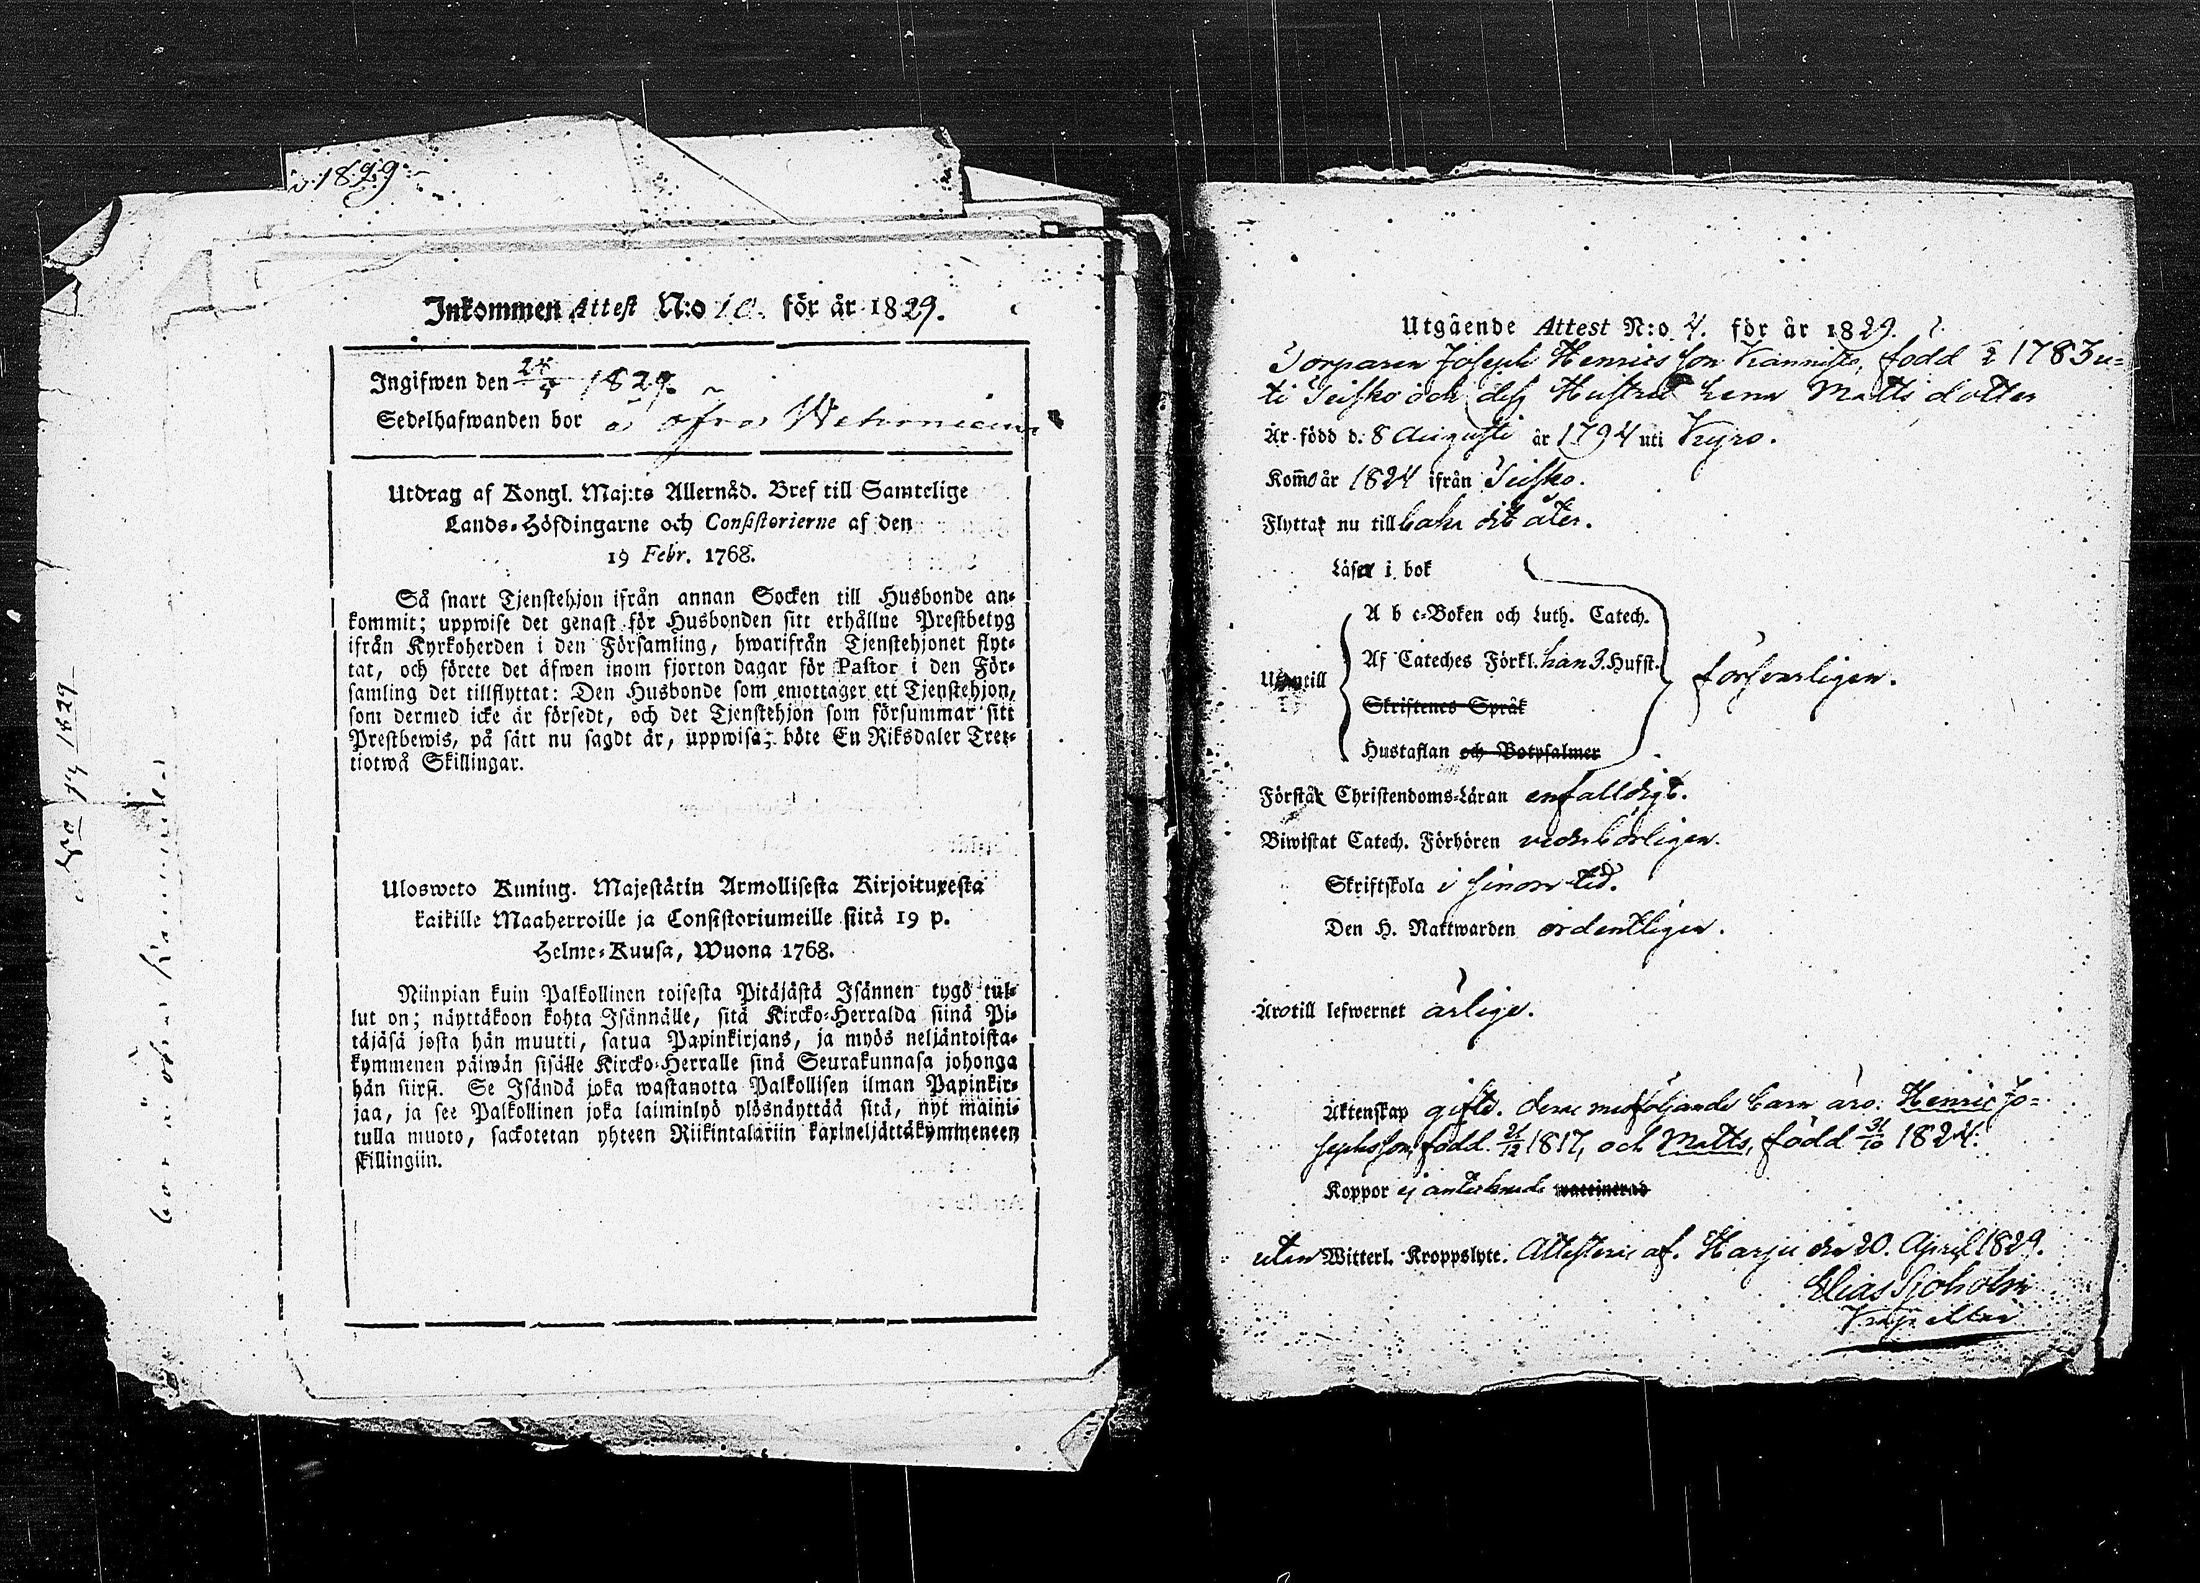 1829
Inkommen Attest N:o 10. för år 1829.
Ingifwen den 24/4 1829.
Sedelhafwanden bor å öfra
Utdrag af Kongl. Maj:ts Allernåd. Bref till Samtelige
Lands-Höfdingarne och Consistorierne af den
19 Febr. 1768.
Så snart Tjenstehjon ifrån annan Socken till Husbonde an-
kommit; uppwise det genast för Husbonden sitt erhållne Prestbetyg
ifrån Kyrkoherden i den Församling, hwarifrån Tjenstehjonet flyt-
tat, och förete det äfwen inom fjorton dagar för Pastor i den För-
samling det tillflyttat: Den Husbonde som emottager ett Tjenstehjon,
som dermed icke är försedt, och det Tjenstehjon som försummar sitt
Prestbewis, på sätt nu sagdt är, uppwisa; böte En Riksdaler Tret-
tiotwå Skillingar.
Ulosweto Kuning. Majestätin Armollisesta Kirjoituxesta
kaikille Maaherroille ja Consistoriumeille siitä 19 p.
Helme-Kuusa, Wuona 1768.
Niinpian kuin Palkollinen toisesta Pitäjästä Isännen tygö tul-
lut on; näyttäkoon kohta Isännälle, sitä Kircko-Herralda siinä Pi-
täjäsä josta hän muutti, satua Papinkirjans, ja myös neljäntoista-
kymmenen päiwän sisälle Kircko-Herralle sinä Seurakunnasa johonga
hän siirsi. Se Isändä joka wastanotta Palkollisen ilman Papinkir-
jaa, ja see Palkollinen joka laiminlyö ylösnäyttää sitä, nyt maini-
tulla muoto, sackotetan yhteen Riikintalariin kaxineljättäkymmeneen
skillingiin.
Utgående Attest N:o 4. för år 1829.
Torparen Joseph Henricsson Kannisto, född 1783 u-
ti Teisko och dess Hustru Lena Mattsdotter
Är född d. 8 Augusti år 1794 uti Kyro.
Kom̅o år 1824 ifrån Teisko.
Flytta nu tillbaka dit åter.
Läser i bok
Utantill
A b c-Boken och Luth. Catech.
Af Cateches Förkl. han 3. Hufst.
Skriftenes Språk
Hustaflan och Botpsalmer
försvarligen.
Förstår Christendoms-Läran enfalldigt.
Biwistat Catech. Förhören vederbörligen.
Skriftskola i sinom tid.
Den H. Nattwarden ordentligen.
Äro till lefwernet ärlige.
Äktenskap gifte. deras medföljande barn äro: Henric Jo-
sephsson, född 21/12 1817, och Matts, född 31/10 1824.
Koppor ej antecknade waccinerad
utan Witterl. Kroppslyte. Attesteras af. Harju den 20. April 1829.
Elias Sjoholm